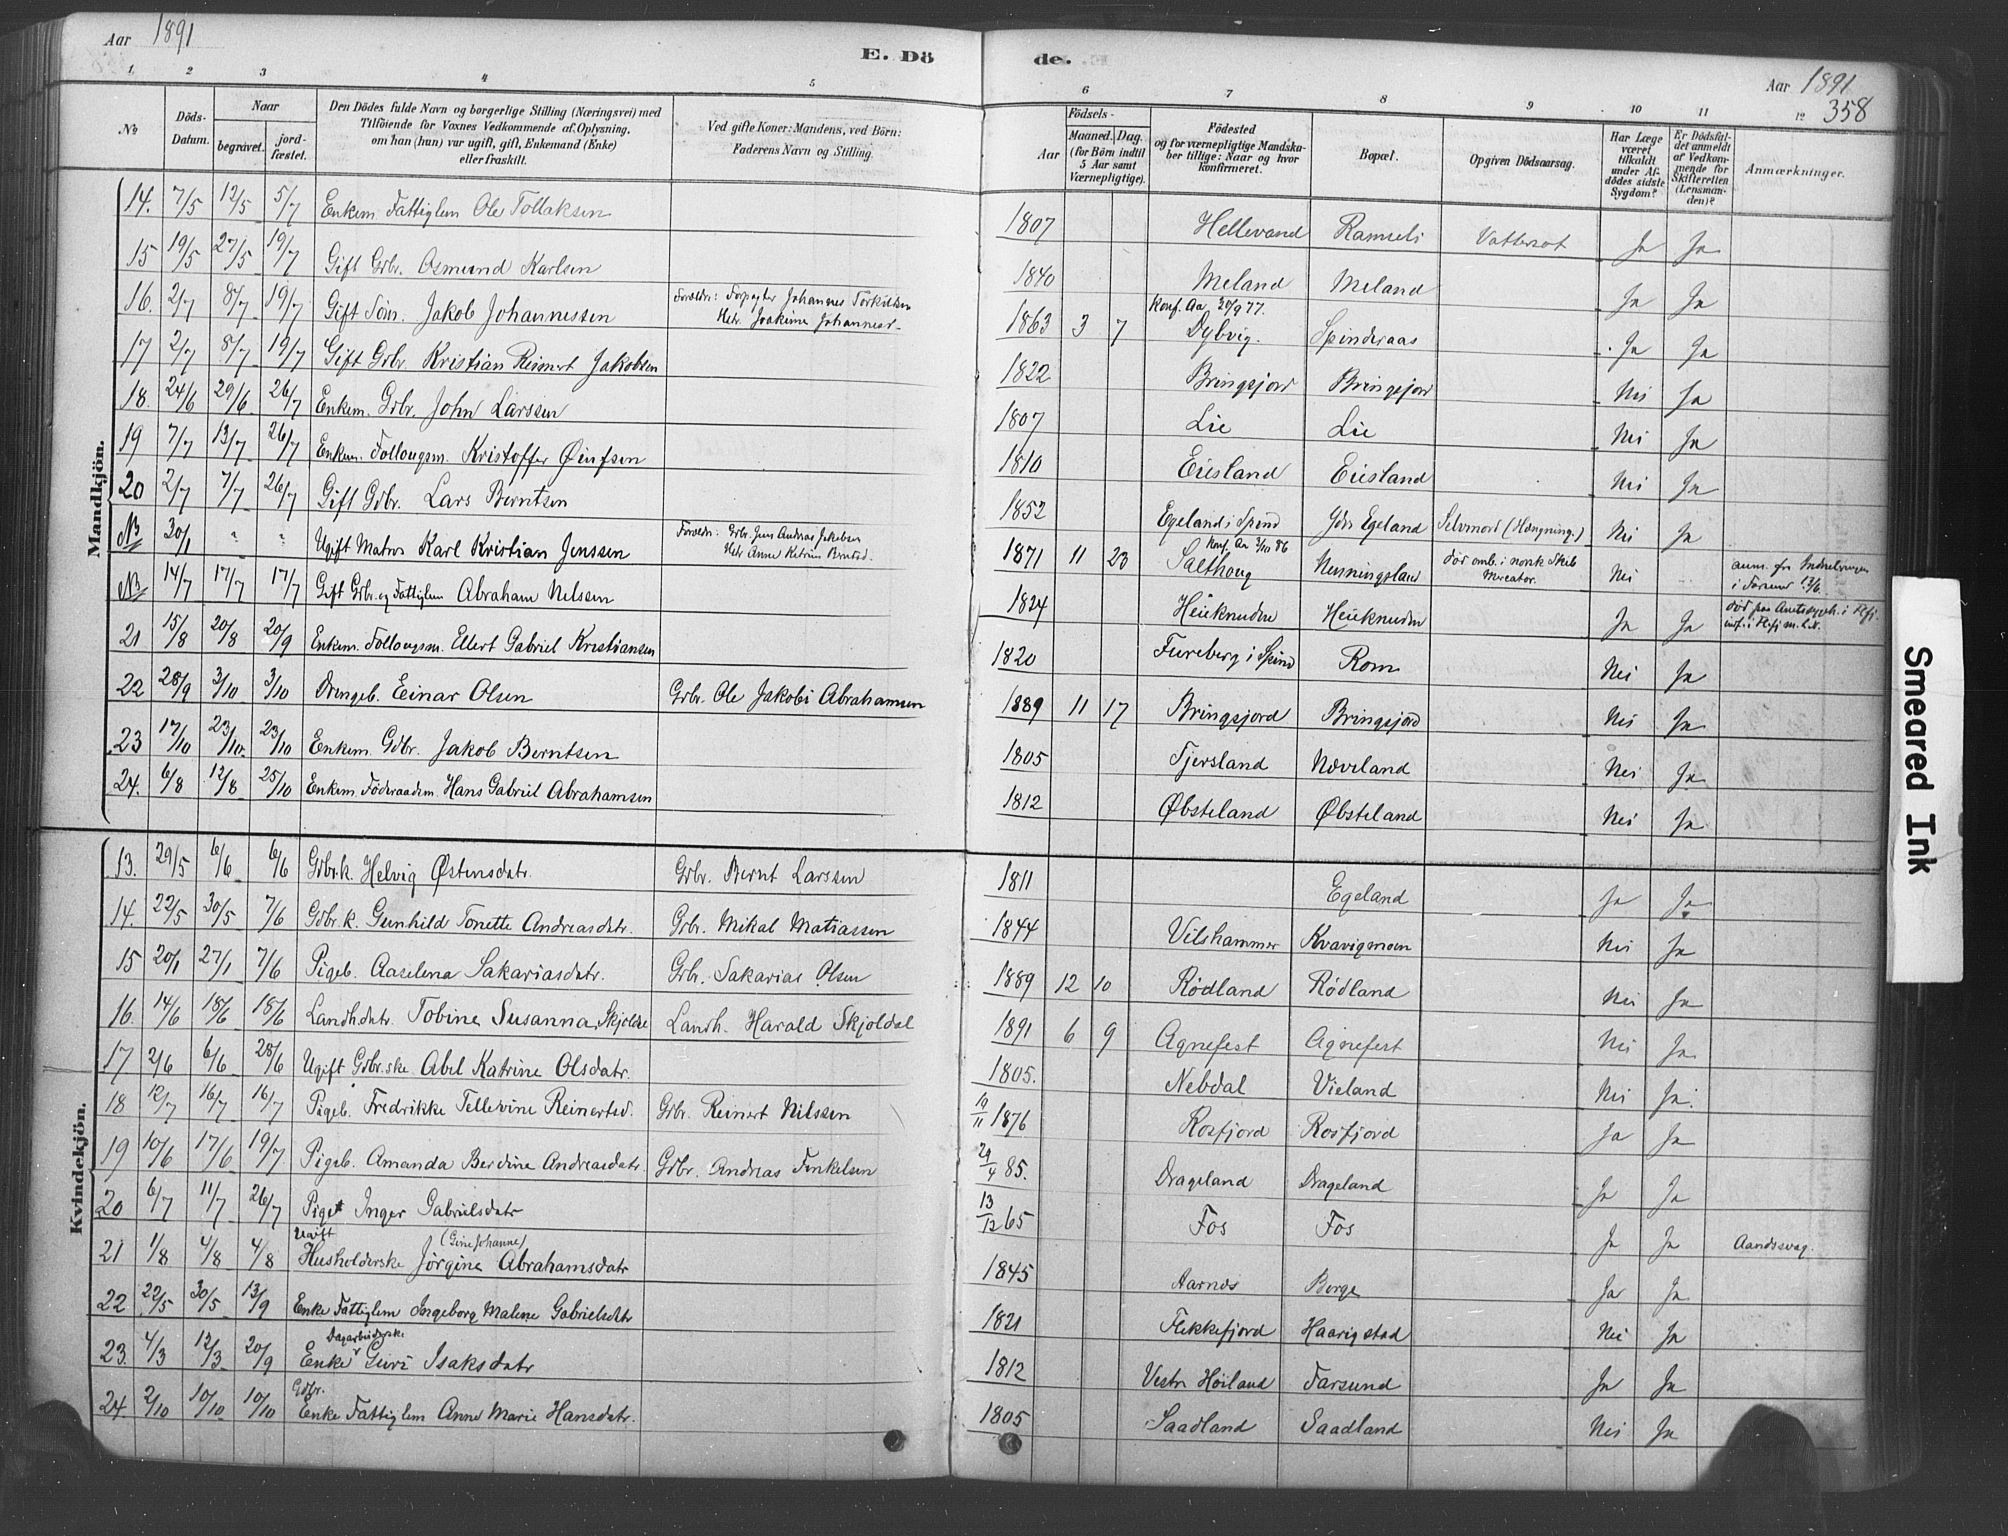 Aar 1891
E. Dö de.
Aar 1891
358
1. 2 3 4 5 6 7 8 9 10 11 12
No
Döds-Datum.
Naar
begravet.
jord-fæstet.
Den Dödes fulde Navn og borgerlige Stilling (Næringsvei) med
Tilföiende for Voxnes Vedkommende af Oplysning,
om han (hun) var ugift, gift, Enkemand (Enke)
eller fraskilt.
Ved gifte Koner: Mandens, ved Börn:
Faderens Navn og Stilling.
Födsels-
Aar
Maaned. Dag.
(for Börn indtil
5 Aar samt
Værnepligtige).
Födested
og for værnepligtige Mandska-
ber tillige: Naar og hvor
konfirmeret.
Bopæl.
Opgiven Dödsaarsag.
Har Læge
været
tilkaldt
under Af-
dödes sidste
Sygdom?
Er Dödsfal-
det anmeldt
af Vedkom-
mende for
Skifteretten
(Lensman-
den)?
Anmærkninger.
Mandkjön.
14. 7/5 12/5 5/7 Enkem. Fattiglem Ole Tollaksen 1807 Hellevand Ramseli Vattersot Ja Ja
15 19/5 27/5 19/7 Gift Gdbr. Osmund Karlsen 1840 Meland Meland Ja Ja
16. 2/7 8/7 19/7 Gift Söm. Jakob Johannessen Forældre: Forpagter Johannes Torkildsen
Htr. Joakime Johannesd. 1863 3 7 Konf. Aa 30/9 77.
Dybvig. Spinderaas Ja Ja
17 2/7 8/7 19/7 Gift Gdbr. Kristian Reinert Jakobsen 1822 Bringsjord Bringsjord Nei Ja
18. 24/6 29/6 26/7 Enkem. Gdbr. John Larssen 1807 Lie Lie Nei Ja
19 7/7 13/7 26/7 Enkem. Follougsm. Kristoffer Öiufsen 1810 Eiesland Eiesland Nei Ja
20 2/7 7/7 26/7 Gift Gdbr. Lars Berntsen 1852 Egeland i Spind Ydr. Egeland Selvmord (Hængning.) Nei Ja
NB 30/1 " " Ugift Matros Karl Kristian Jenssen Forældre: Gdbr. Jens Andreas Jakobsen
Htr. Anne Katrine Berntsd. 1871 11 23 Konf. Aa 3/10 86
Salthoug Henningsland död omb. i norsk Skib
Mercator. Nei anm. fra Indrulleringen
i Farsund 13/6.
NB 14/7 17/7 17/7 Gift Gdbr. og Fattiglem Abraham Nilssen 1824 Heieknuden Heieknuden Ja Ja död paa Amtssygeh. i Flfj.
21 15/8 20/8 20/9 Enkem. Follougsm. Ellert Gabriel Kristiansen 1820 Fureberg i Spind Rom Nei Ja
22 28/9 3/10 3/10 Drengeb. Einar Olsen Gdbr. Ole Jakobi Abrahamsen 1889 11 17 Bringsjord Bringsjord Nei Ja
23 17/10 23/10 23/10 Enkem. Gdbr. Jakob Berntsen 1805 Tjersland Næveland Nei Ja
24. 6/8 12/8 25/10 Enkem. Föderaadsm. Hans Gabriel Abrahamsen 1812 Øbsteland Øbsteland Nei Ja
Kvindekjön.
13. 29/5 6/6 6/6 Gdbr.k. Helvig Østensdatr. Gdbr. Bernt Larssen 1811 Egeland Ja Ja
14. 22/5 30/5 7/6 Gdbr.k. Gunhild Tonette Andreasdatr. Gdbr. Mikal Matiassen 1844 Vilshammer Kvavigmoen Nei Ja
15 20/1 27/1 7/6 Pigeb. Aaselena Sakariasdatr. Gdbr. Sakarias Olsen 1889 12 10 Rödland Rödland Nei Ja
16. 14/6 18/6 18/6 Landh.datr. Tobine Susanna Skjoldal Landh. Harald Skjoldal 1891 6 9 Agnefest Agnefest Nei Ja
17 2/6 6/6 28/6 Ugift Gdbr.ske. Abel Katrine Olsdatr. 1805. Nebdal Vieland Nei Ja.
18 12/7 16/7 16/7 Pigeb. Fredrikke Tellevine Reinertsd. Gdbr. Reinert Nilssen 19/11 1876 Rosfjord Rosfjord Ja Ja
19 10/6 17/6 19/7 Pigeb. Amanda Berdine Andreasdatr. Gdbr. Andreas Tenkelsen 29/4 85. Drageland Drageland Ja Ja
20 6/7 11/7 26/7 Piget Inger Gabrielsdatr 13/12 65 Fos Fos Ja Ja Aandssvag.
21 1/8 4/8 4/8 Ugift
Husholderske Jörgine (Gine Johanne) Abrahamsdatr 1845 Aarnes Borge Ja Ja
22 22/5 30/5 13/9 Enke Fattiglem Ingeborg Malene Gabrielsdatr 1821 Flekkefjord Haarigstad Nei Ja
23. 4/3 12/3 20/9 Dagarbeiderske
Enke Guri Isaksdatr 1812 Vestr. Höiland Farsund Ja Ja
24. 2/10 10/10 10/10 Gdbr.
Enke Fattiglem Anne Marie Hansdatr. 1805 Saadland Saadland Nei Ja
Smeared Ink